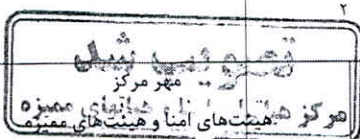 ۲
تصویب شد
مهر مرکز
مرکز هیئتهای امنا و هیئتهای ممیزه
هیئت‌های امنا و هیئت‌های ممیزه